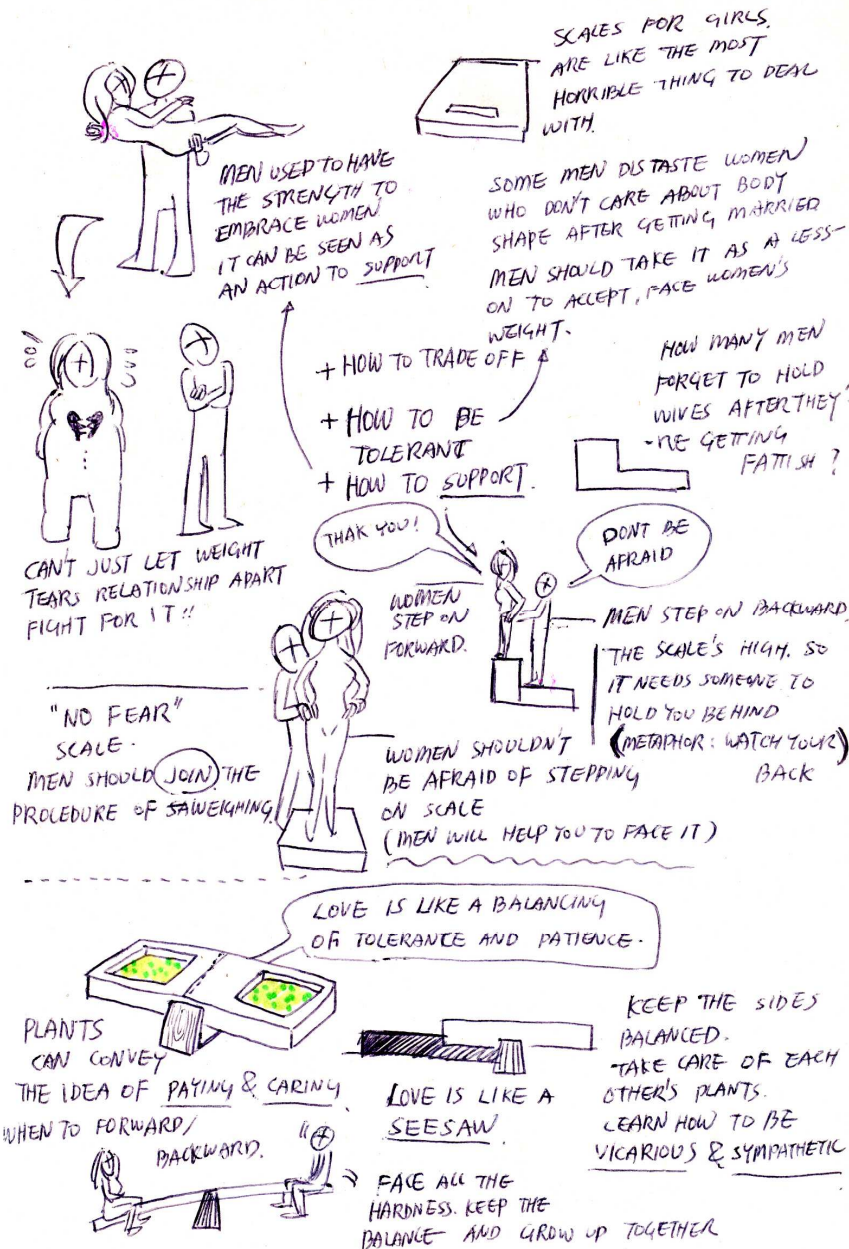 SCALES FOR GIRLS.
ARE LIKE THE MOST
HORRIBLE THING TO DEAL
WITH.
MEN USED TO HAVE
THE STRENGTH TO
EMBRACE WOMEN
IT CAN BE SEEN AS
AN ACTION TO SUPPORT
SOME MEN DISTASTE WOMEN
WHO DON'T CARE ABOUT BODY
SHAPE AFTER GETTING MARRIED
MEN SHOULD TAKE IT AS A LESS-
ON TO ACCEPT, FACE WOMEN'S
WEIGHT.
+ HOW TO TRADE OFF
+ HOW TO BE
TOLERANT
+ HOW TO SUPPORT.
HOW MANY MEN
FORGET TO HOLD
WIVES AFTER THEY'
-RE GETTING
FATTISH ?
CAN'T JUST LET WEIGHT
TEARS RELATIONSHIP APART
FIGHT FOR IT !!
THAK YOU!
DONT BE
AFRAID
WOMEN
STEP ON
FORWARD.
MEN STEP ON BACKWARD.
THE SCALE'S HIGH. SO
IT NEEDS SOMEONE TO
HOLD YOU BEHIND
(METAPHOR: WATCH YOUR)
BACK
"NO FEAR"
SCALE.
MEN SHOULD JOIN THE
PROCEDURE OF WEIGHING.
WOMEN SHOULDN'T
BE AFRAID OF STEPPING
ON SCALE
(MEN WILL HELP YOU TO FACE IT)
LOVE IS LIKE A BALANCING
OF TOLERANCE AND PATIENCE.
PLANTS
CAN CONVEY
THE IDEA OF PAYING & CARING
WHEN TO FORWARD/
BACKWARD.
LOVE IS LIKE A
SEESAW
KEEP THE SIDES
BALANCED.
TAKE CARE OF EACH
OTHER'S PLANTS.
LEARN HOW TO BE
VICARIOUS & SYMPATHETIC
FACE ALL THE
HARDNESS. KEEP THE
BALANCE AND GROW UP TOGETHER